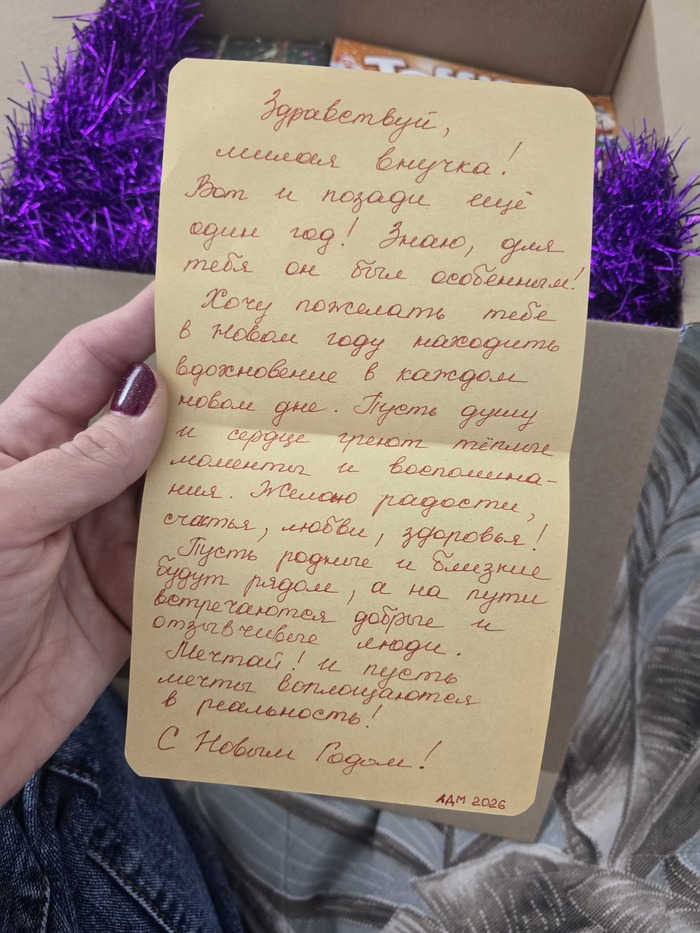 Здравствуй,
милая внучка!
Вот и позади ещё
один год! Знаю, для
тебя он был особенным!
Хочу пожелать тебе
в Новом году находить
вдохновение в каждом
новом дне. Пусть душу
и сердце греют тёплые
моменты и воспомина-
ния. Желаю радости,
счастья, любви, здоровья!
Пусть родные и близкие
будут рядом, а на пути
встречаются добрые и
отзывчивые люди.
Мечтай! и пусть
мечты воплощаются
в реальность!
С Новым Годом!
АДМ 2026